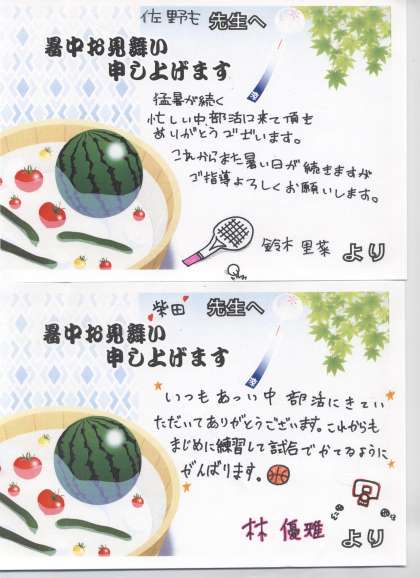 佐野も 先生へ
暑中お見舞い
申し上げます
猛暑が続く
忙しい中、部活に来て頂き
ありがとうございます。
これからまた暑い日が続きますが
ご指導よろしくお願いします。
鈴木 里菜 より
柴田 先生へ
暑中お見舞い
申し上げます
いつもあっつい中 部活にきてい
ただいてありがとうございます。これからも
まじめに練習して試合でかてるように
がんばります。
林 優雅 より